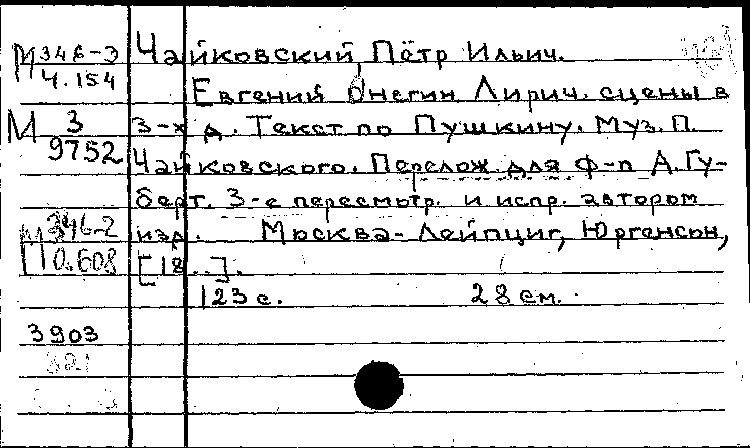 М 346-Э
4.154
Чайковский, Пётр Ильич.
Евгений Онегин Лирич. сцены в
М 3
9752
3-х д. Текст по Пушкину. Муз. П.
Чайковского. Перелож. для ф-п А. Гу-
берт. 3-е пересмотр. и испр. автором
М 346-2
0.608
изд. Москва-Лейпциг, Юргенсон,
[18..].
123 с. 28 см.
3903
321